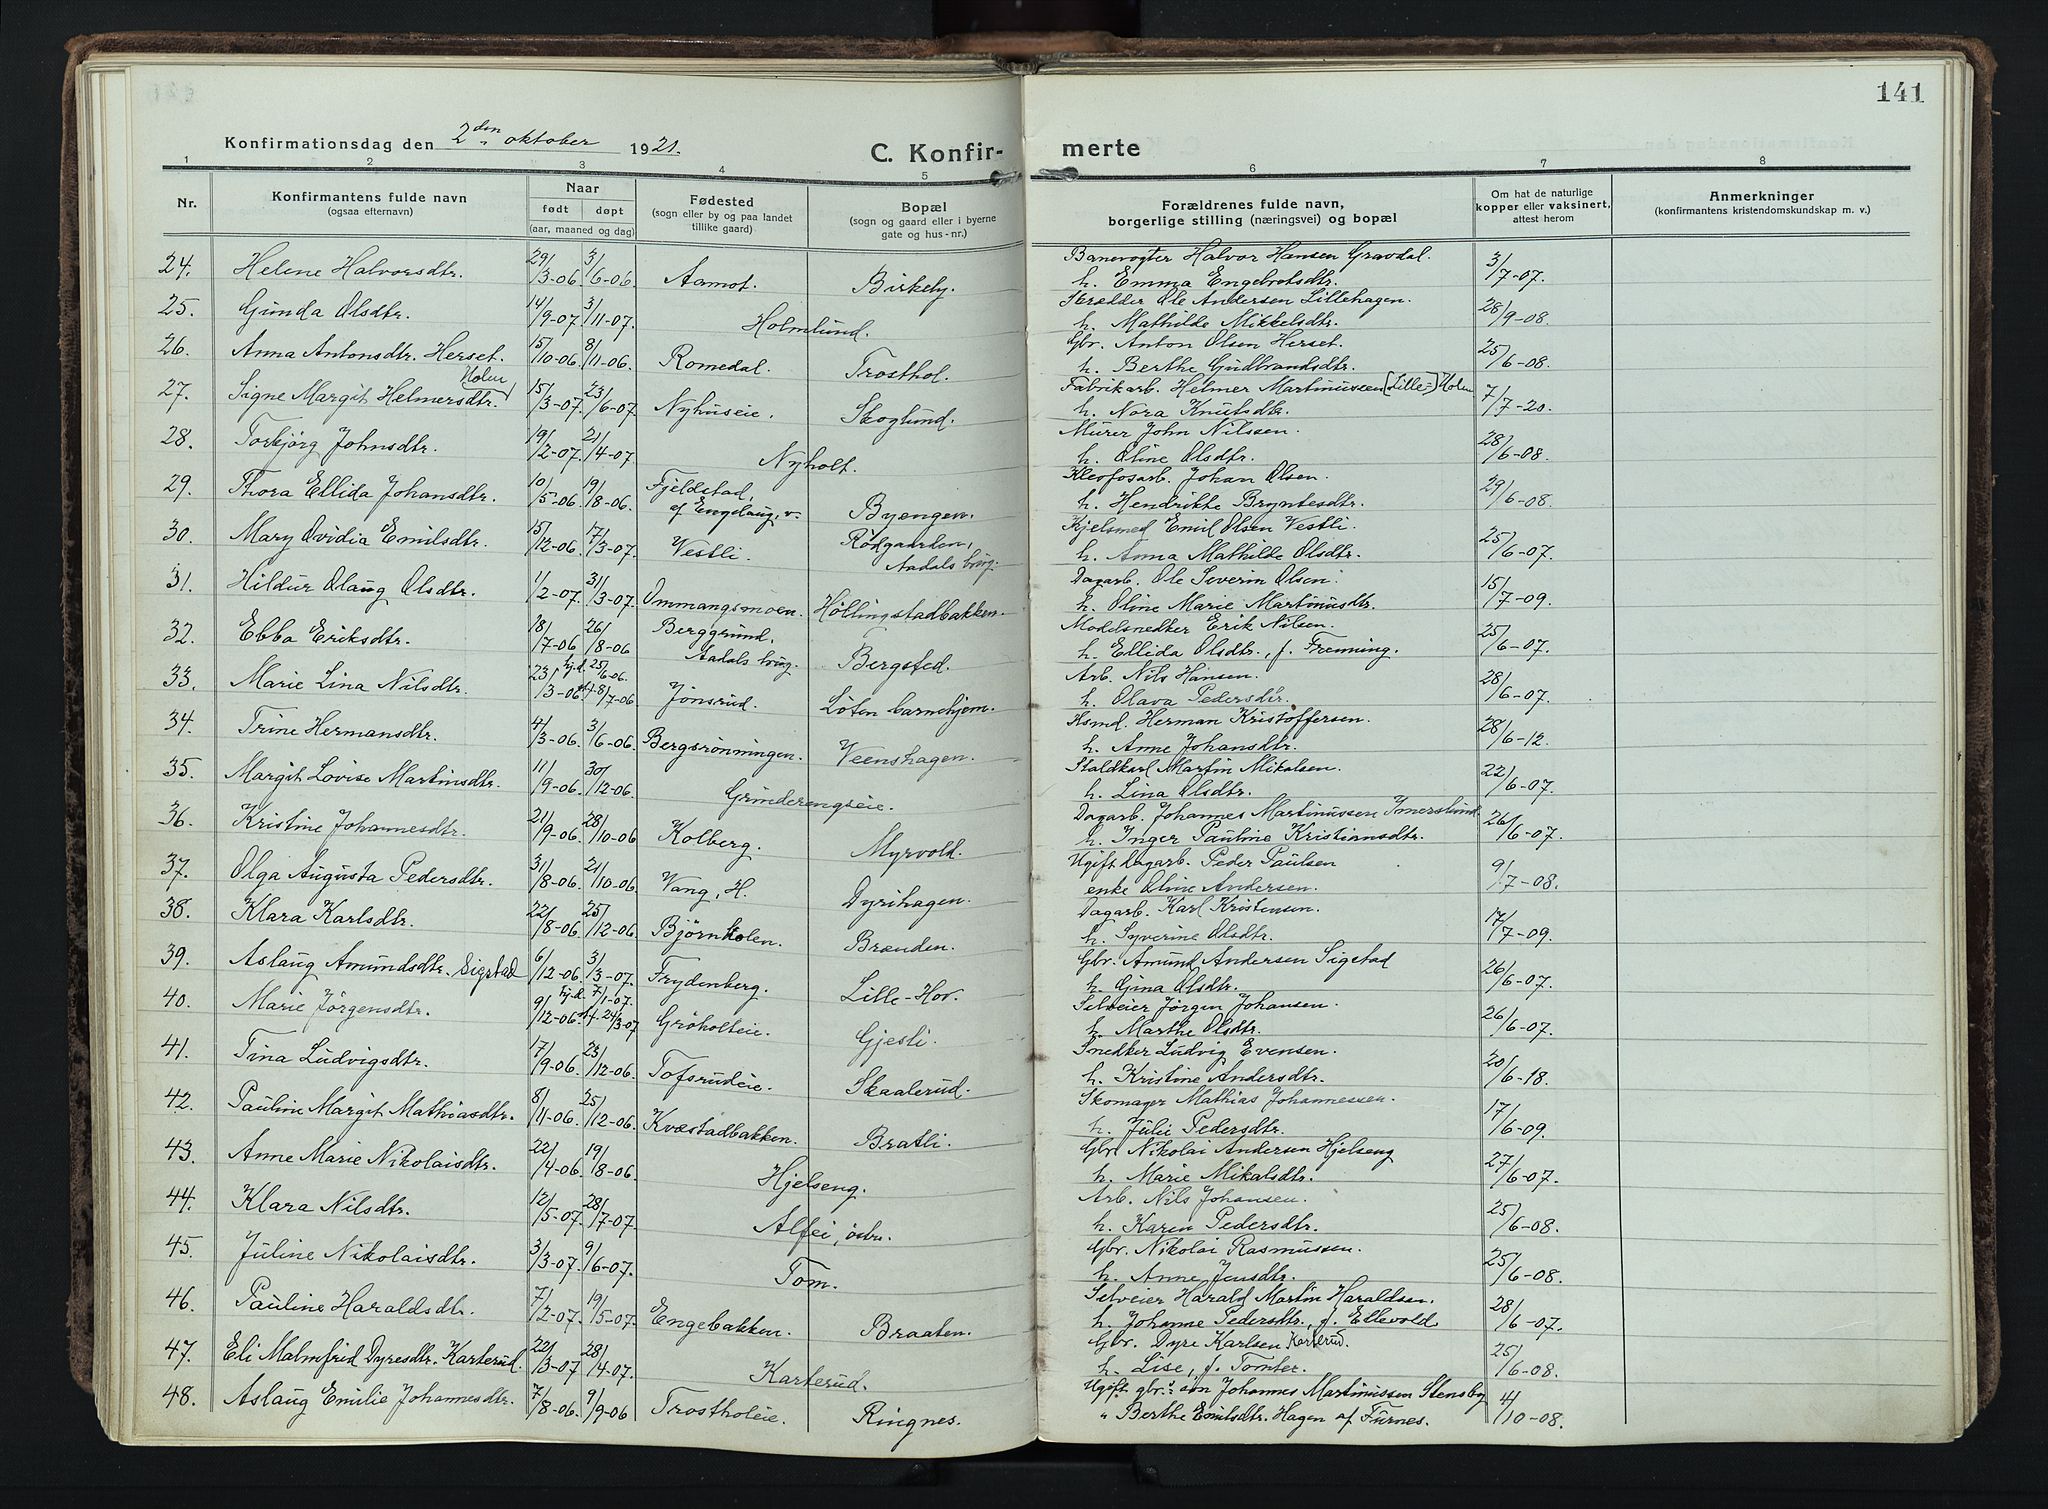 141
Konfirmationsdag den 2den oktober 1921.
C. Konfir- merte
1 2 3 4 5 6 7 8
Nr. | Konfirmantens fulde navn (ogsaa efternavn) | Naar født døpt (aar, maaned og dag) | Fødested (sogn eller by og paa landet tillike gaard) | Bopæl (sogn og gaard eller i byerne gate og hus-nr.) | Forældrenes fulde navn, borgerlige stilling (næringsvei) og bopæl | Om hat de naturlige kopper eller vaksinert, attest herom | Anmerkninger (konfirmantens kristendomskundskap m. v.)
24. Helene Halvorsdtr. 29/3-06. 3/6-06. Aamot. Birkeby. Banevogter Halvor Hansen Gravdal. 3/7-07.
h. Emma Engebretsdtr.
25. Gunda Olsdtr. 14/9-07. 3/11-07. Holmlund. Skrædder Ole Andersen Lillehagen. 28/9-08.
h. Mathilde Mikkelsdtr.
26. Anna Antonsdtr. Herset. 15/10-06. 8/11-06. Romedal. Trosthol. Gbr. Anton Olsen Herset. 25/6-08.
h. Berthe Gudbrandsdtr.
27. Signe Margit Helmersdtr. Holen 15/3-07. 23/6-07. Nyhuseie. Skoglund. Fabrikarb. Helmer Martinussen (Lille-) Holen 7/7-20.
h. Nora Knutsdtr.
28. Torbjørg Johnsdtr. 19/2-07. 21/4-07. Nyholt. Murer John Nilssen. 28/6-08.
h. Oline Olsdtr.
29. Thora Ellida Johansdtr. 10/5-06. 19/8-06. Fjeldstad, af Engelaug, v. Byengen. Kleofosarb. Johan Olsen. 29/6-08.
h. Hendrikke Bryntesdtr.
30. Mary Ovidia Emilsdtr. 15/12-06. 17/3-07. Vestli. Rødgaarden, Aadals brug. Kjelsmed Emil Olsen Vestli. 25/6-07.
h. Anna Mathilde Olsdtr.
31. Hildur Olaug Olsdtr. 1/2-07. 31/3-07. Ommangsmoen. Høllingstadbakken. Dagarb. Ole Severin Olsen. 15/7-09.
h. Oline Marie Martinusdtr.
32. Ebba Eriksdtr. 18/7-06. 26/8-06 Berggrund, Aadals brug. Bergsted. Modelsnedker Erik Nilsen. 25/6-07.
h. Ellida Olsdtr., f. Freming.
33. Marie Lina Nilsdtr. 23/3-06. hj.d. 25/6-06. st. 8/7-06 Jønsrud. Løten barnehjem. Arb. Nils Hansen. 28/6-07.
h. Olava Pedersdtr.
34. Trine Hermansdtr. 4/3-06. 3/6-06. Bergsrønningen. Veenshagen. Hsmd. Herman Kristoffersen. 28/6-12.
h. Anne Johansdtr.
35. Margit Lovise Martinsdtr. 11/9-06. 30/12-06. Grinderengseie. Staldkarl Martin Mikalsen. 22/6-07.
h. Lina Olsdtr.
36. Kristine Johannesdtr. 21/9-06. 28/10-06 Kolberg. Myrvold. Dagarb. Johannes Martinussen Imerslund 26/6-07.
h. Inger Pauline Kristiansdtr.
37. Olga Augusta Pedersdtr. 31/8-06. 21/10-06. Vang, H. Dyrihagen. Ugift dagarb. Peder Paulsen 9/7-08.
enke Oline Andersen.
38. Klara Karlsdtr. 22/8-06. 25/12-06. Bjørnholen. Brænden. Dagarb. Karl Kristensen. 17/7-09.
h. Syverine Olsdtr.
39. Aslaug Amundsdtr. Sigstad 6/12-06. 3/3-07. Frydenberg. Lille-Hov. Gbr. Amund Andersen Sigstad 26/6-07.
h. Gina Olsdtr.
40. Marie Jørgensdtr. 9/12-06. hj.d. 7/1-07. st. 24/3-07 Grøholteie. Gjesli. Selveier Jørgen Johansen. 26/6-07.
h. Marthe Olsdtr.
41. Tina Ludvigsdtr. 17/9-06. 23/12-06. Tofsrudeie. Skaalerud. Snedker Ludvig Evensen. 20/6-18.
h. Kristine Andersdtr.
42. Pauline Margit Mathiasdtr. 8/11-06. 25/12-06. Kvæstadbakken. Bratli. Skomager Mathias Johannessen. 17/6-09.
h. Julie Pedersdtr.
43. Anne Marie Nikolaisdtr. 22/4-06. 19/8-06. Hjelseng. Gbr. Nikolai Andersen Hjelseng 27/6-07.
h. Marie Mikalsdtr.
44. Klara Nilsdtr. 12/5-07. 28/7-07. Alfei, østr. Arb. Nils Johansen. 25/6-08.
h. Karen Pedersdtr.
45. Juline Nikolaisdtr. 3/3-07. 9/6-07. Tom. Gbr. Nikolai Rasmussen. 25/6-08.
h. Anne Jensdtr.
46. Pauline Haraldsdtr. 7/2-07. 19/5-07. Engebakken. Braaten. Selveier Harald Martin Haraldsen. 28/6-07.
h. Johanne Pedersdtr., f. Ellevold
47. Eli Malmfrid Dyresdtr. Karterud. 22/3-07 28/4-07. Karterud. Gbr. Dyre Karlsen Karterud. 25/6-08.
h. Lise, f. Tomter.
48. Aslaug Emilie Johannesdtr. 7/8-06. 9/9-06 Trostholeie. Ringnes. Ugift gbr.søn Johannes Martinussen Stensby 4/10-08.
" Berthe Emilsdtr. Hagen af Furnes.